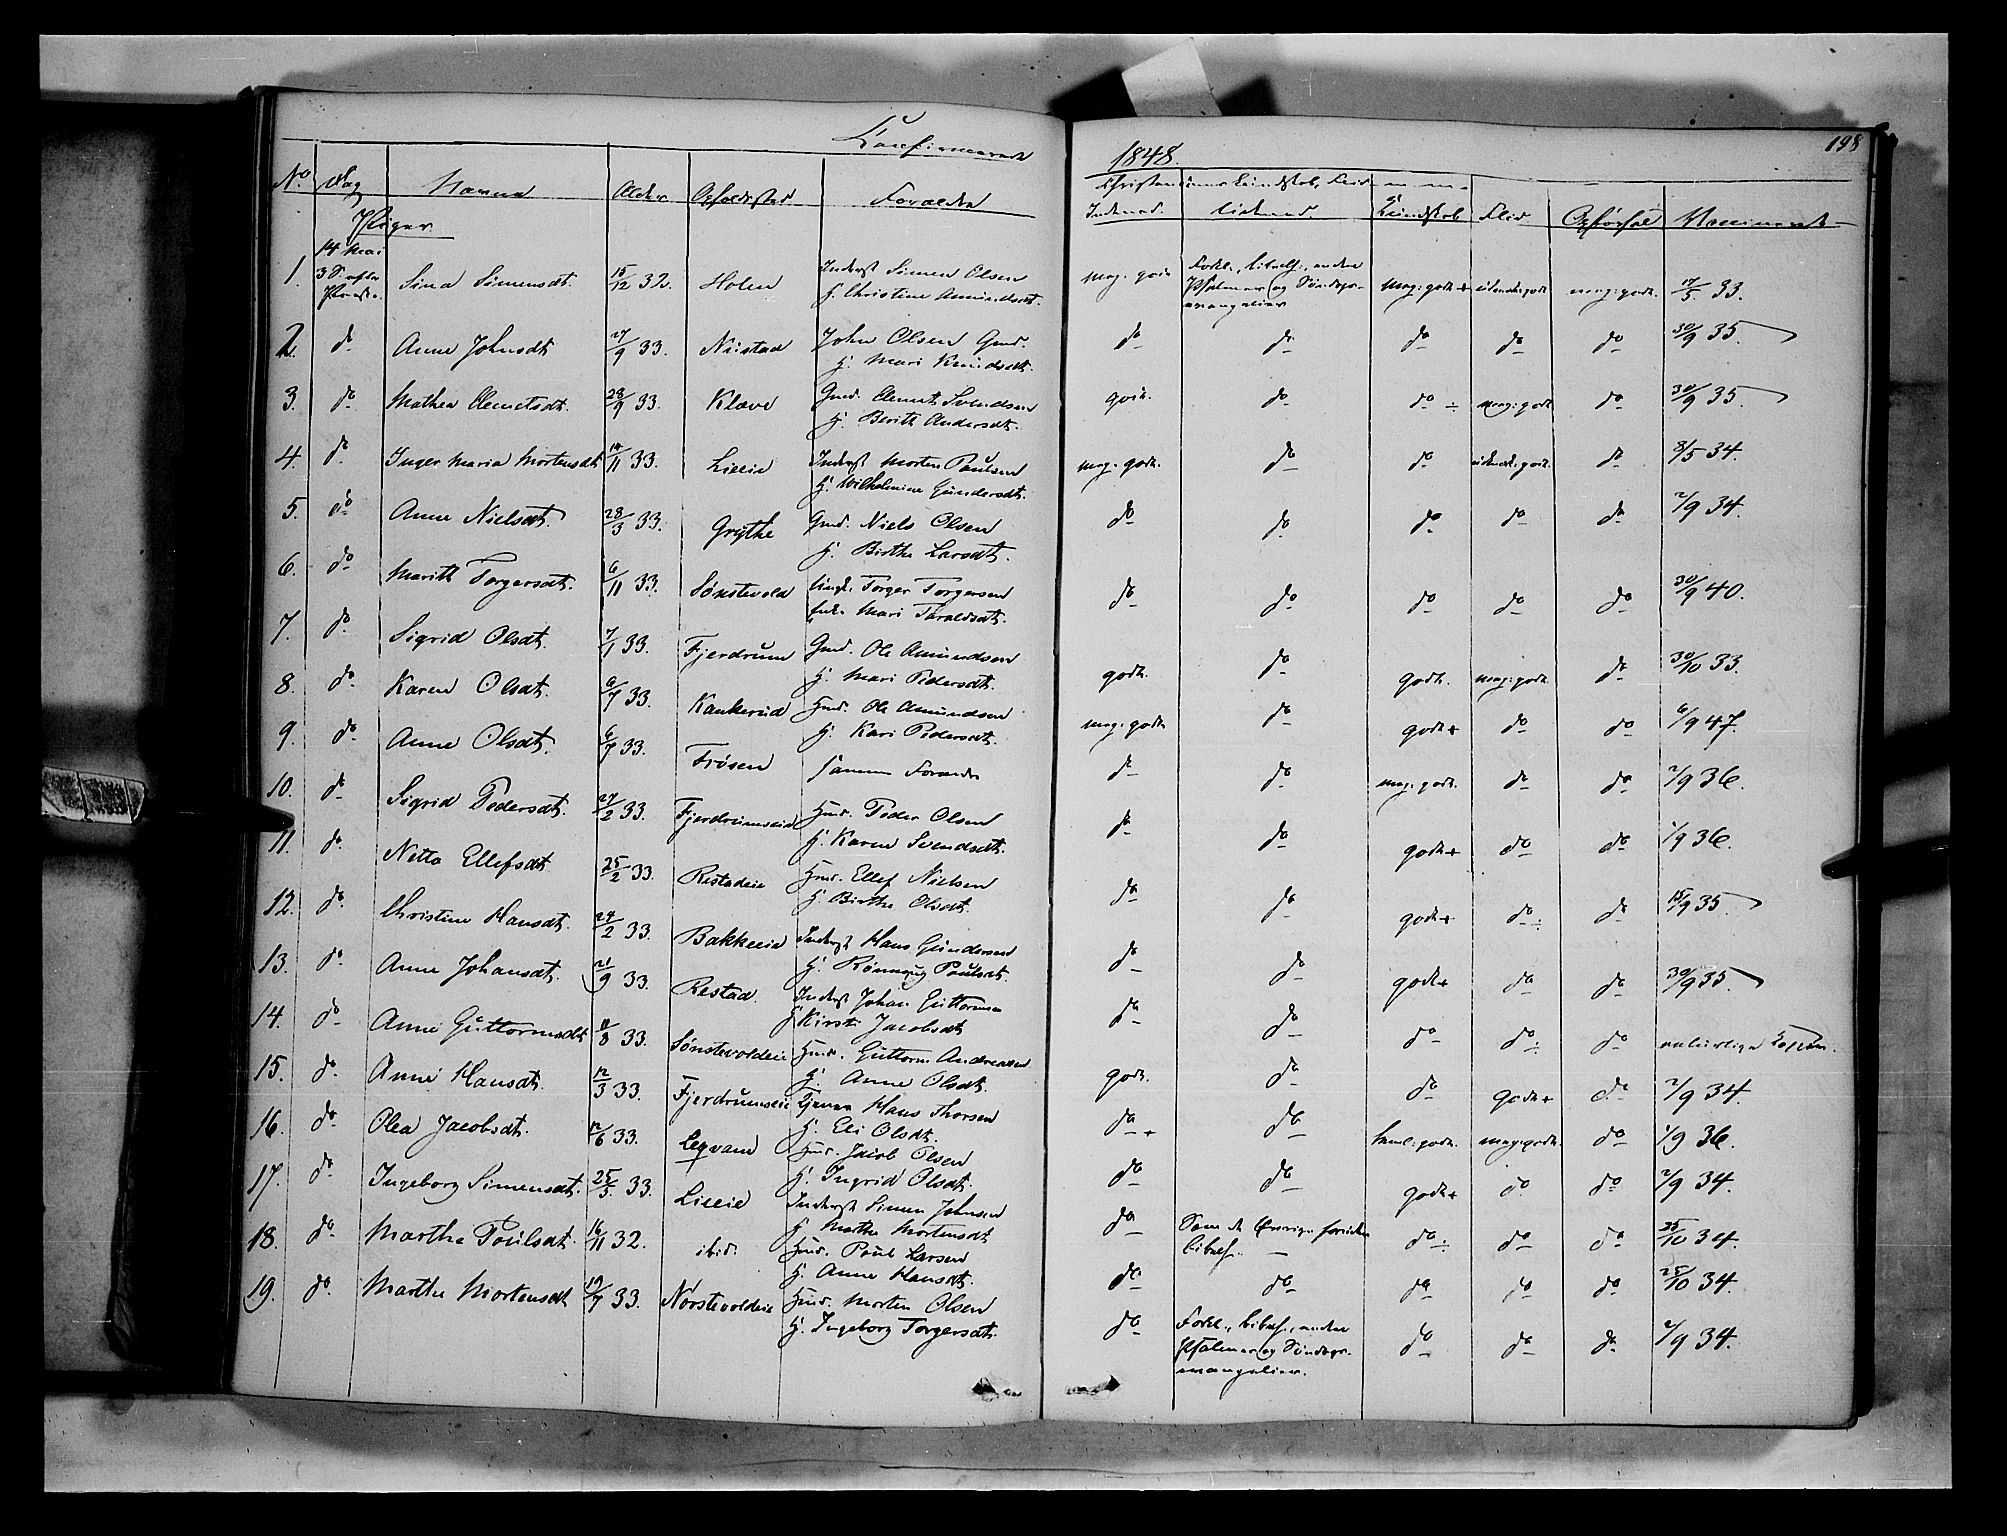 Confirmerede
1848.
198
No Dag Navne Alder Opholdssted Forældre
Indenad. Udenad Kundskab Flid Opførsel Vaccineret
Piger
1. 14 Mai 3 S. efter Paaske. Sina Simensdt. 15/12 32. Holen Inderst Simen Olsen
H. Christine Amundsdt. meg: godt Forkl., bibelh., andre Psalmer og Søndags-evangelier meg: godt + udmærk: godt meg: godt. 17/5 33.
2. do Anne Johnsdt 27/9 33. Nustad John Olsen Gmd.
H. Mari Knudsdt. do do do do do 30/9 35.
3. do Mathea Clemetsdt. 28/9 33. Klæve Gmd. Clemet Svendsen
H. Berith Andersdt. godt. do do ÷ meg: godt do 30/9 35.
4. do Inger Maria Mortensdt 14/11 33. Lieeie Inderst Morten Paulsen
H. Wilhelmine Gundersdt. meg: godt. do do udmærk: godt. do 8/5 34.
5. do Anne Nielsdt. 28/3 33. Grythe Gmd. Niels Olsen
H. Birthe Larsdt. do do do do do 2/9 34.
6. do Marith Torgersdt. 6/11 33. Sønstevold Ungk. Torger Torgersen
Enke Mari Taraldsdt. do do do do do 30/9 40.
7. do Sigrid Olsdt. 7/1 33. Fjerdrum Gmd. Ole Amundsen
H. Mari Pedersdt. godt. do godt. meg: godt. do 30/10 33.
8. do Karen Olsdt. 6/7 33. Kankerud Hmd. Ole Amundsen
H. Kari Pedersdt. meg: godt do godt + do do 6/9 47.
9. do Anne Olsdt. 6/7 33. Frøsen samme Forældre do do meg: godt. do do 2/9 36.
10. do Sigrid Pedersdt. 27/2 33. Fjerdrumseie Hmd. Peder Olsen
H. Karen Svendsdt. do do godt + do do 1/9 36.
11. do Netta Ellefsdt 25/2 33. Restadeie Hmd. Ellef Nielsen
H. Birthe Olsdt. do do godt + do ÷ do 15/9 35.
12. do Christine Hansdt. 24/2 33. Bakkeeie Inderst Hans Gundersen
H. Rønnaug Paulsdt. do do godt + do do 30/9 35.
13. do Anne Johansdt. 21/9 33. Restad. Inderst Johan Guttormsen
H. Kirsti Jacobsdt do do do do ÷ do naturlige Kopper.
14. do Anne Guttormsdt 11/8 33. Sønstevoldeie Hmd. Guttorm Andreasen
H. Anne Olsdt. godt. do do godt + do 2/9 34.
15. do Anne Hansdt. 12/3 33. Fjerdrumseie Tjener Hans Thorsen
H. Eli Olsdt. do + do teml: godt. meg: godt. do 1/9 36.
16. do Olea Jacobsdt. 12/6 33. Legvam Hmd. Jacob Olsen
H. Ingrid Olsdt. do do godt + do do 2/9 34.
17. do Ingeborg Simensdt. 25/5 33. Lieeie Inderst Simen Johnsen
H. Marthe Mortensdt do Som de Øvrige foruden bibelh. do ÷ do do 25/10 34.
18. do Marthe Poulsdt. 16/11 32. ibid. Hmd. Poul Larsen
H. Anne Hansdt. do do do do do 25/10 34.
19. do Marthe Mortensdt 19/7 33. Nørstevoldeie Hmd. Morten Olsen
H. Ingeborg Torgersdt. do Forkl., bibelh., andre Psalmer og Søndags-evangelier. do do do 2/9 34.